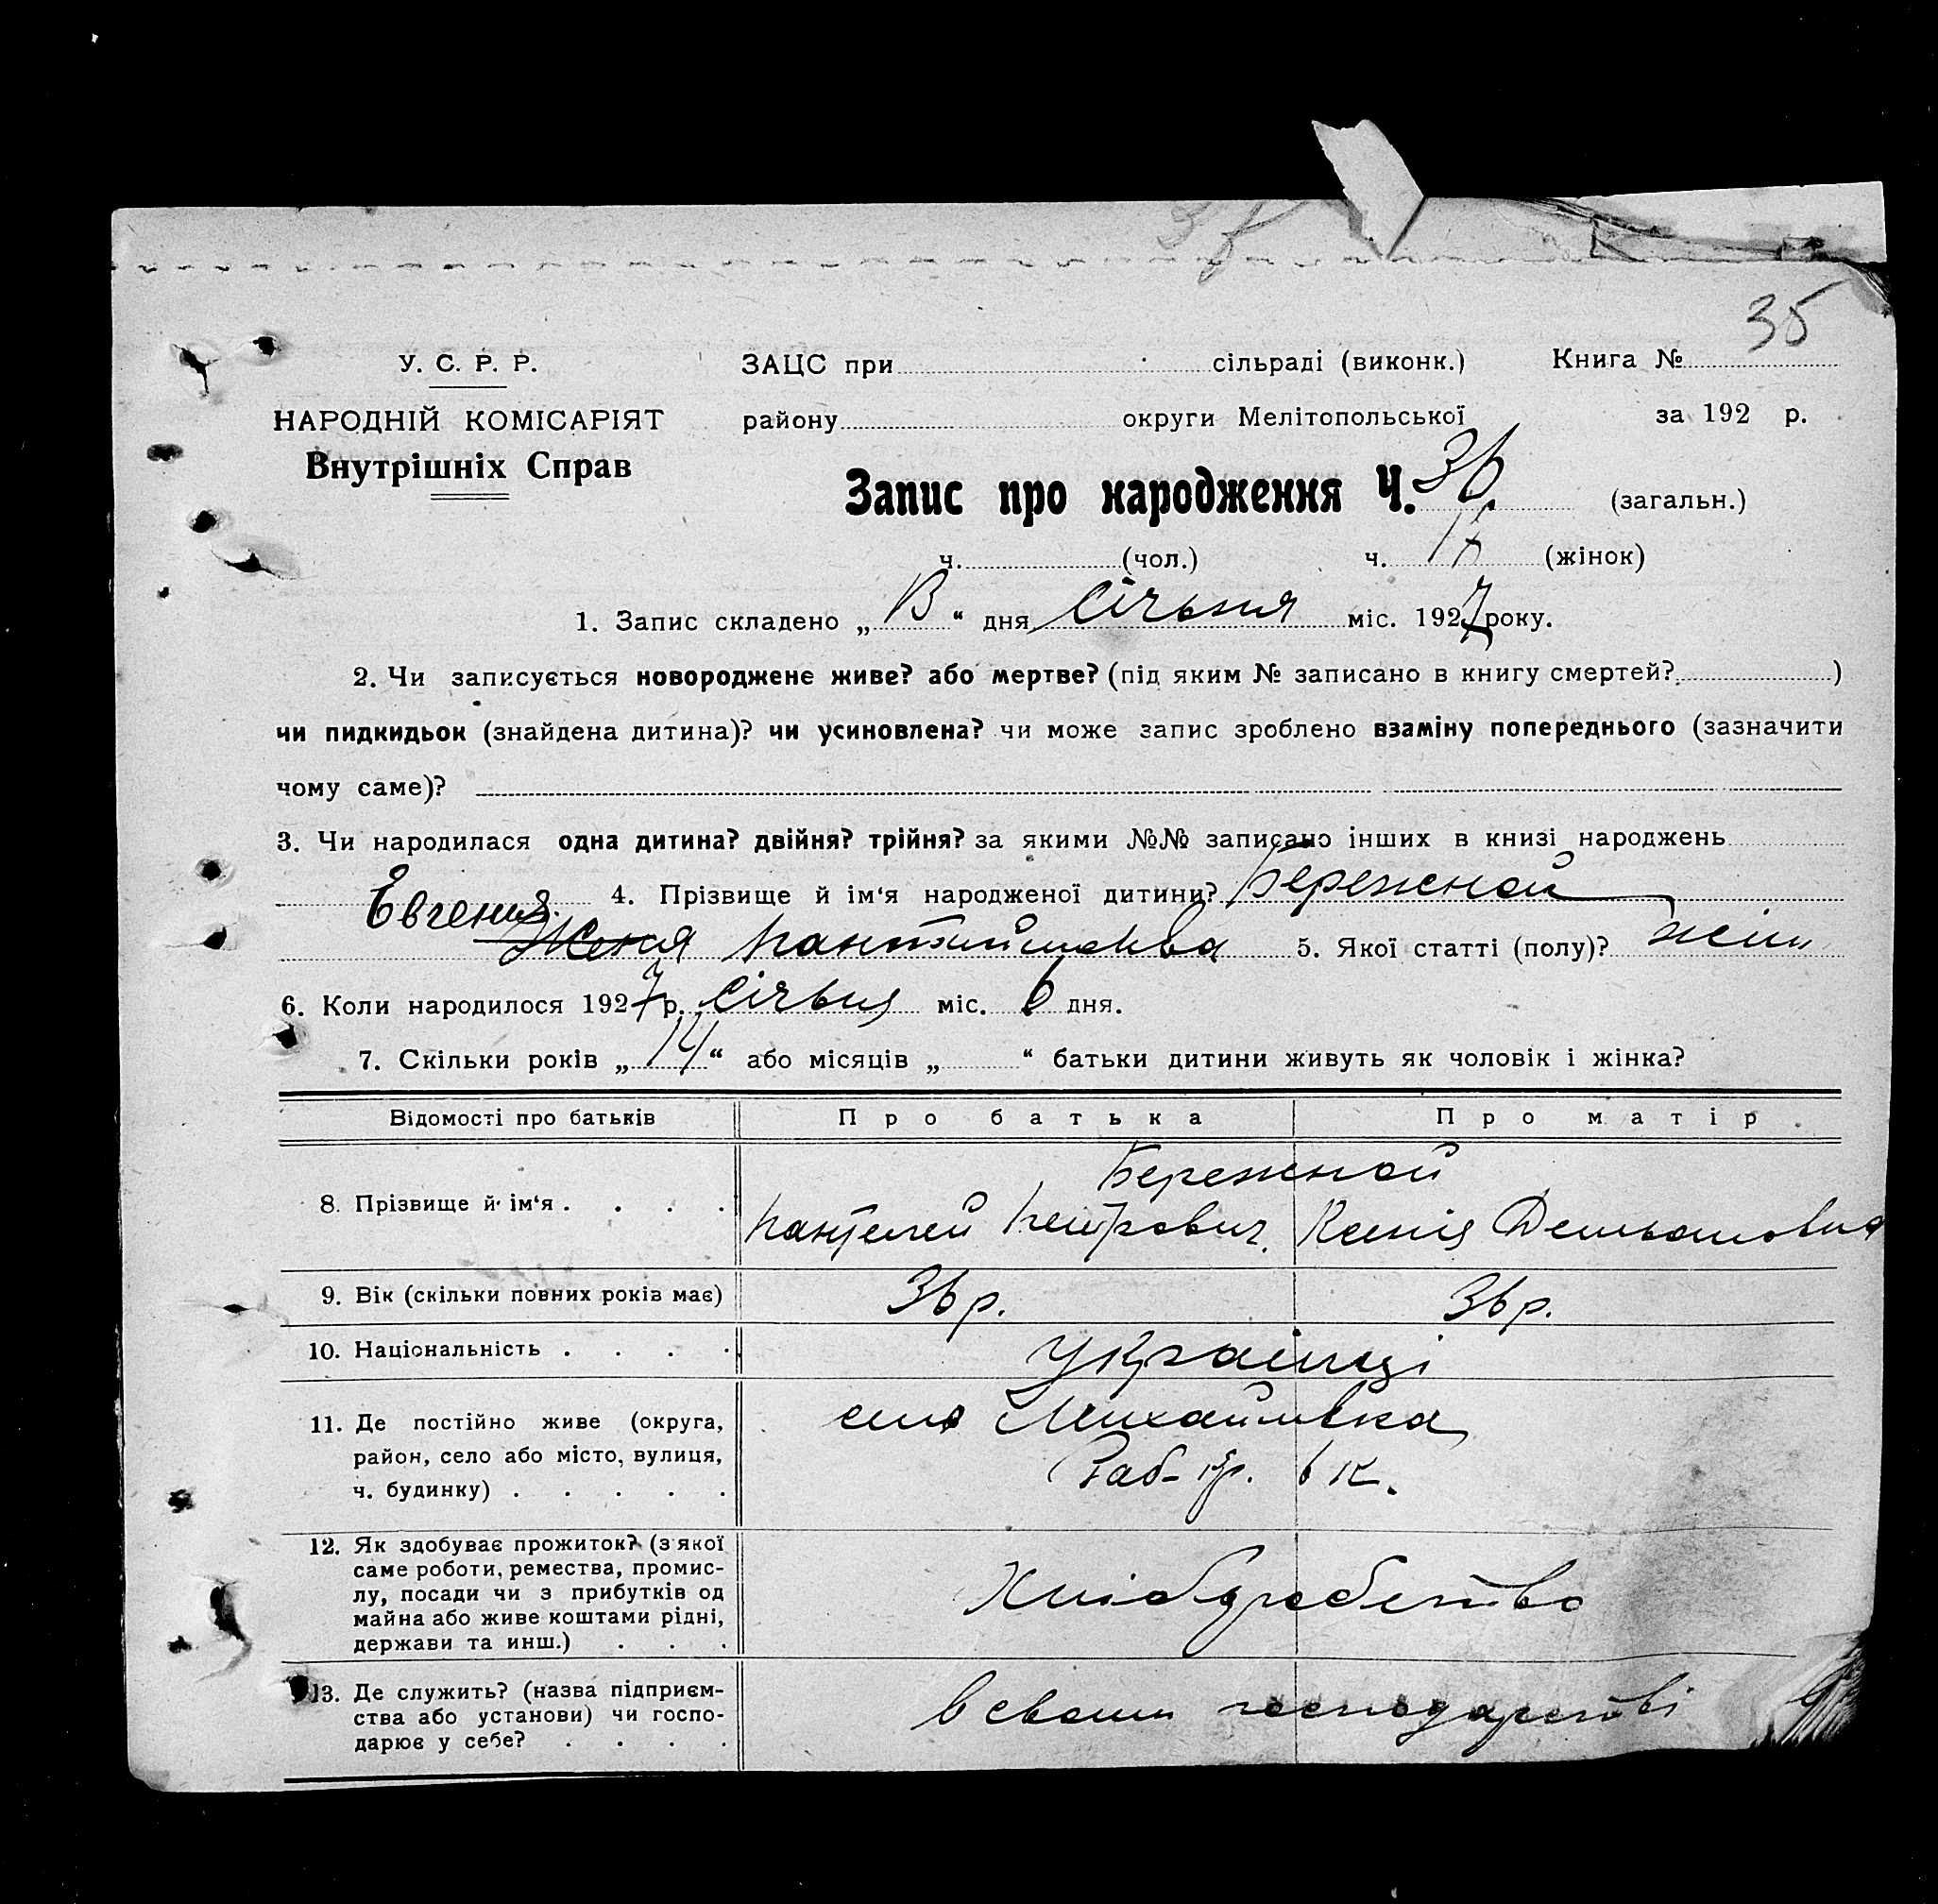 35
У. С. Р. Р.
НАРОДНІЙ КОМІСАРІЯТ
Внутрішніх Справ
ЗАЦС при сільраді (виконк.) Книга №
району округи Мелітопольської за 192 р.
Запис про народження Ч. 36 (загальн.)
ч. (чол.) ч. 17 (жінок)
1. Запис складено „13“ дня Січьня міс. 1927 року.
2. Чи записується новороджене живе? або мертве? (під яким № записано в книгу смертей? )
чи пидкидьок (знайдена дитина)? чи усиновлена? чи може запис зроблено взаміну попереднього (зазначити
чому саме)?
3. Чи народилася одна дитина? двійня? трійня? за якими №№ записано інших в книзі народжень
4. Прізвище й ім‘я народженої дитини? Бережной
Евгения
Женя Пантиймовна 5. Якої статті (полу)? жін
6. Коли народилося 1927 р. Січьня міс. 6 дня.
7. Скільки років „14“ або місяців „ “ батьки дитини живуть як чоловік і жінка?
Відомості про батьків Про батька Про матір
Бережной
8. Прізвище й ім‘я . . . . Пантелей Петрович. Ксенія Демьяновна
9. Вік (скільки повних років має) 36 р. 36 р.
10. Національність . . . . Українці
11. Де постійно живе (округа,
район, село або місто, вулиця,
ч. будинку) . . . . .
село Михайлівка
Раб-кр. 6 к.
12. Як здобуває прожиток? (з якої
саме роботи, ремества, промис-
лу, посади чи з прибутків од
майна або живе коштами рідні,
держави та инш.) . . .
Хліборобство
13. Де служить? (назва підприєм-
ства або установи) чи госпо-
дарює у себе? . . . .
в своим господарстві